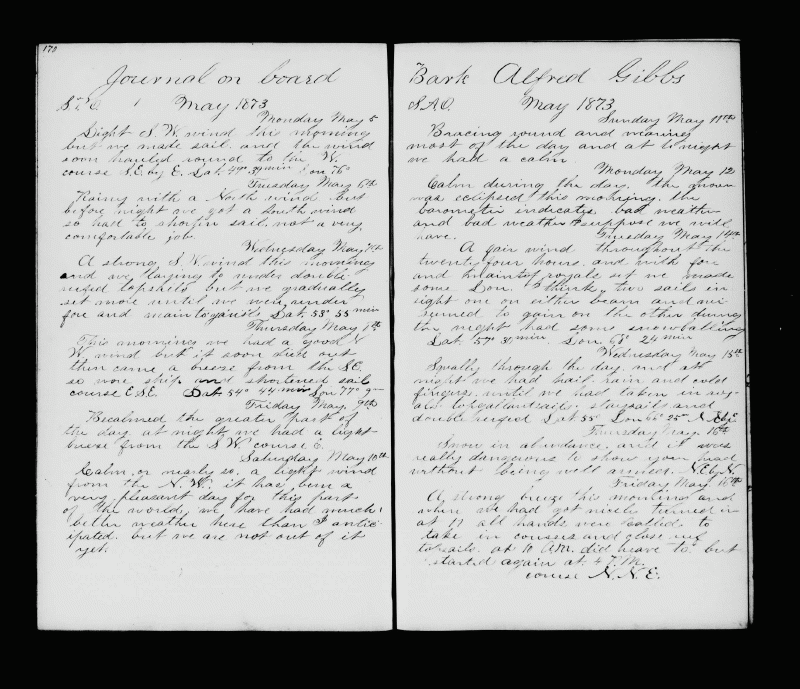 170
Journal on board
May 1873
Monday May 5
Light S. W. wind this morning
but we made sail and the wind
soon hauled round to the W.
course S.E. by E. Lat. min Lon 76°
Tuesday May 6th
Rainy with a North wind but
before night we got a South wind
so had to shorten sail not a very
comfortable job.
Wednesday May 7th
A strong S. W. wind this morning
and we laying to under double
reefed topsails but we gradually
set more until we were under
fore and main to'gansls Lat. 53° 55 min
Thursday May
This morning we had a good
W. wind but it soon died out
then came a breeze from the S.E.
so wore ship and shortened sail
course E S.E. Lat 54° 44 min Lon 77°
Friday May 9th
Becalmed the greater part of
the day at night we had a light
breeze from the S W course E.
Saturday May 10th
Calm, or nearly so, a light wind
from the N. W. it has been a
very pleasant day for this part
of the world, we have had much
better weather here than I antic-
ipated. but we are not out of it
yet.
Bark Alfred Gibbs
May 1873
Sunday May 11th
Bracing round and wearing
most of the day and at night
we had a calm.
Monday May 12
Calm during the day. the moon
was eclipsed this morning. the
barometer indicates bad weather
and bad weather I suppose we will
have. Tuesday May
A fair wind throughout the
twenty four hours. and with fore
and main royals set we made
some Lon. I think, two sails in
sight one on either beam and we
seemed to gain on the other during
the night had some snowballing
Lat. 57° min. Lon. 68° 24 min
Wednesday May
Squally through the day. and at
night we had hail, rain and cold
fingers, until we had taken in roy-
als topgallantsails, staysails and
double reefed Lat 55° Lon
Thursday May
Snow in abundance, and it was
really dangerous to show your head
without being well armed. N.E. by N
Friday May 16th
A strong breeze this morning and
when we had got nicely turned in
at all hands were called to
take in courses and close reef
topsails. at 10 A.M. did heave to. but
started again at 4 P.M.
course N.N.E.